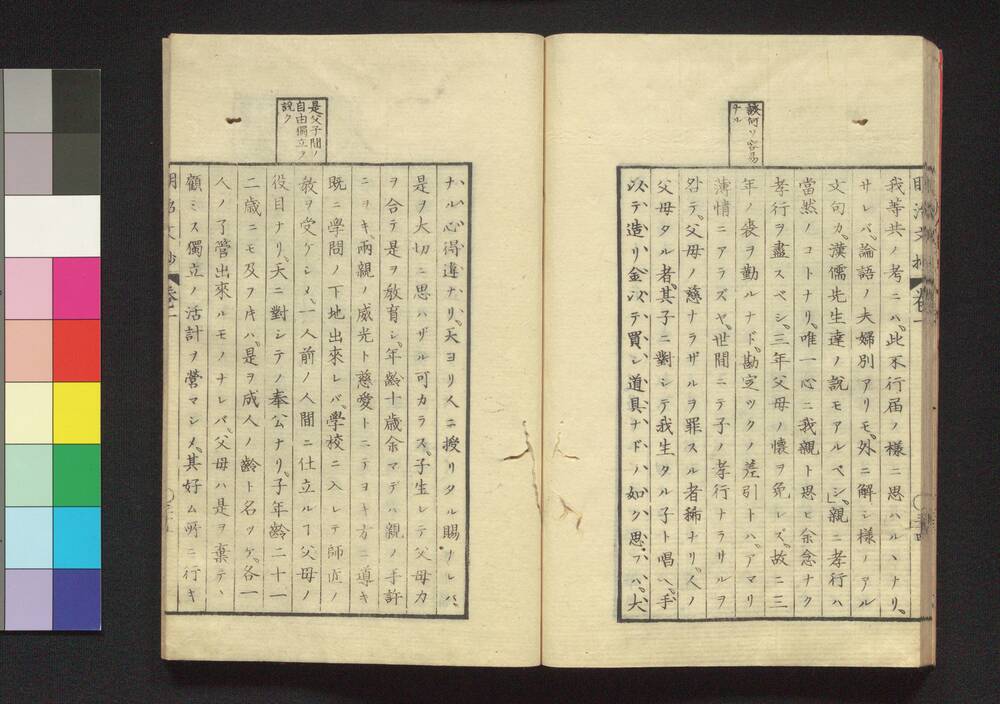 談何ソ容易
ナル
明治文抄 卷一
我等共ノ考ニハ此不行届ノ様ニ思ハルヽナリ
サレバ論語ノ夫婦別アリモ外ニ解シ様ノアル
文句カ漢儒先生達ノ說モアルベシ親ニ孝行ハ
當然ノコトナリ唯一心ニ我親ト思ヒ余念ナク
孝行ヲ盡スベシ三年父母ノ懷ヲ免レズ故ニ三
年ノ喪ヲ勤ルナド勘定ツクノ差引トハアマリ
薄情ニアラズヤ世間ニテ子ノ孝行ナラサルヲ
咎テ父母ノ慈ナラザルヲ罪スル者稀ナリ人ノ
父母タル者其子ニ對シテ我生タル子ト唱ヘ手
以テ造リ金以テ買シ道具ナドノ如ク思フハ大
是父子間ノ
自由獨立ヲ
說ク
ナル心得違ナリ天ヨリ人ニ授リタル賜ナレバ
是ヲ大切ニ思ハザル可カラス子生レテ父母力
ヲ合テ是ヲ敎育シ年齡十歲余マデハ親ノ手許
ニヲキ兩親ノ威光ト慈愛トニテヨキ方ニ導キ
既ニ學問ノ下地出來レバ學校ニ入レテ師匠ノ
敎ヲ受ケシメ一人前ノ人間ニ仕立ルヿ父母ノ
役目ナリ天ニ對シテノ奉公ナリ子年齡二十一
二歲ニモ及フ𪜈ハ是ヲ成人ノ齡ト名ツケ各一
人ノ了管出來ルモノナレバ父母ハ是ヲ棄テヽ
顧ミス獨立ノ活計ヲ營マシメ其好ム所ニ行キ
明治文抄 卷一